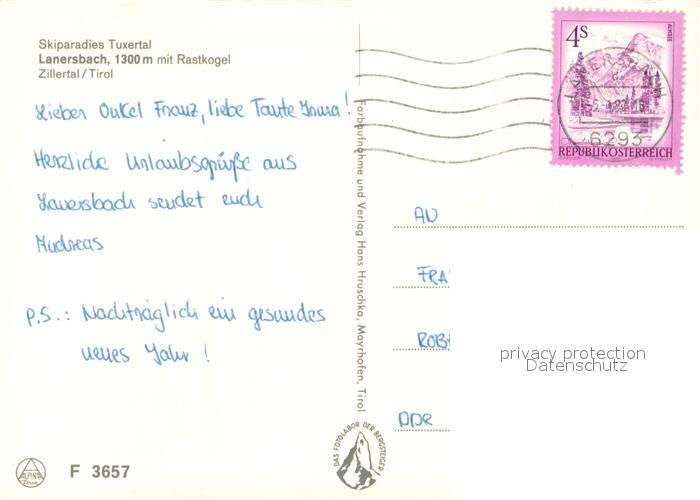 Skiparadies Tuxertal
Lanersbach, 1300 m mit Rastkogel
Zillertal/Tirol
Lieber Onkel Franz, liebe Tante Irma!
Herzliche Urlaubsgrüße aus
Lanersbach sendet euch
Andreas
P.S.: Nachträglich ein gesundes
neues Jahr!
ALPINA
F 3657
Farbaufnahme und Verlag Hans Hruschka, Mayrhofen, Tirol
DAS FOTOLABOR DER BERGSTEIGER
4s
ALMSEE
LANERSBACH
6293
REPUBLIK ÖSTERREICH
AN
FRA
ROB
DDR
privacy protection
Datenschutz